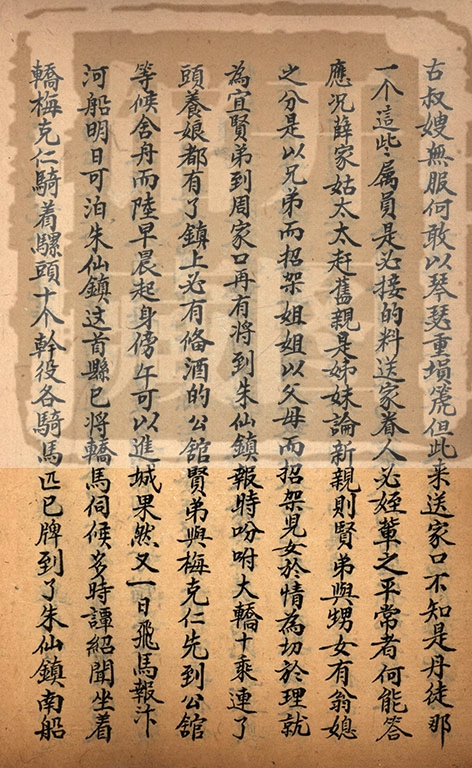 古叔嫂無服何敢以琴瑟重塤箎但此来送家口不知是丹徒那
一个這些属員是必接的料送家眷人必姪輩之平常者何能答
應况薛家姑太太赶舊親是姊妹論新親則賢弟與甥女有翁媳
之分是以兄弟而招架姐姐以父母而招架児女於情為切於理就
為宜賢弟到周家口再有将到朱仙鎮報時吩咐大轎十乘連了
頭養娘都有了鎮上必有俻酒的公舘賢弟與梅克仁先到公舘
等候舍舟而陸早晨起身傍午可以進城果然又一日飛馬報汴
河船明日可泊朱仙鎮这首縣已将轎馬伺候多時譚紹聞坐着
轎梅克仁騎着騾頭十个幹役各騎馬匹已牌到了朱仙鎮南船